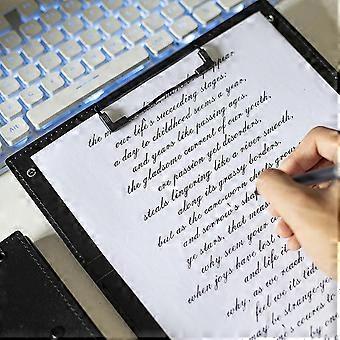 the more appear
our life's succeeding stages:
a day to childhood seems a year,
and years like passing ages.
the gladsome current of our youth,
ere passion yet disorders,
steals lingering like a river smooth,
along its grassy borders.
but as the care-worn cheeks grow
and sorrow's sha
ye stars, that mea
why seem your
when joys have lost
and life
why, as we reach
feel we its tide
may be strange-ye
's course to